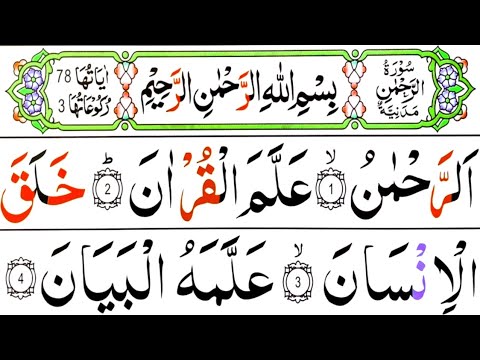 سُوْرَةُ الرَّحْمٰنِ مَدَنِيَّةٌ
بِسْمِ اللّٰهِ الرَّحْمٰنِ الرَّحِيْمِ
اٰيَاتُهَا 78 رُكُوْعَاتُهَا 3
اَلرَّحْمٰنُ ۙ‏﴿1﴾ عَلَّمَ الْقُرْاٰنَ ؕ‏﴿2﴾ خَلَقَ
الْاِنْسَانَ ۙ‏﴿3﴾ عَلَّمَهُ الْبَيَانَ ﴿4﴾